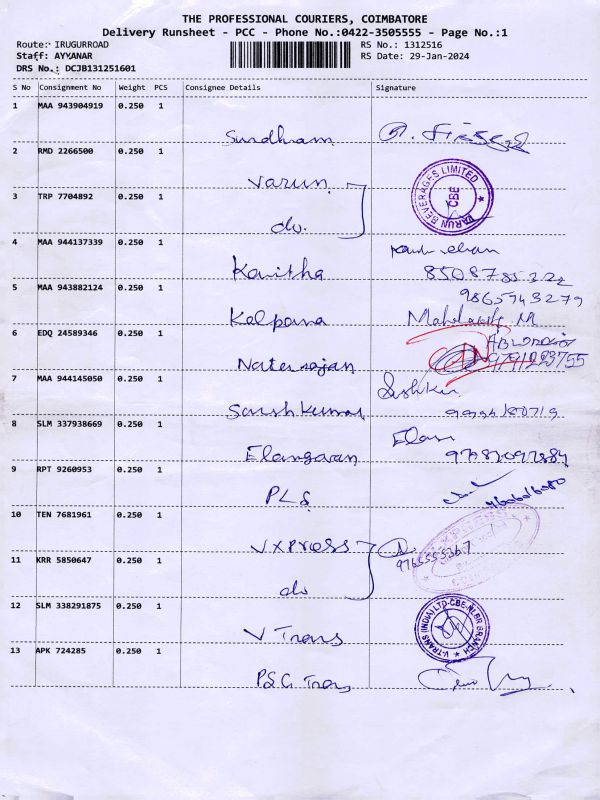 THE PROFESSIONAL COURIERS, COIMBATORE
Delivery Runsheet - PCC - Phone No.:0422-3505555 - Page No.:1
Route: IRUGURROAD
RS No.: 1312516
Staff: AYYANAR
RS Date: 29-Jan-2024
DRS No.: DCJB131251601
S No Consignment No Weight PCS Consignee Details Signature
1 MAA 943904919 0.250 1
Sundharam
2 RMD 2266500 0.250 1
Varun
VARUN BEVERAGES LIMITED
CBE
3 TRP 7704892 0.250 1
do.
4 MAA 944137339 0.250 1
Kavitha
8508785322
5 MAA 943882124 0.250 1
9865943279
Kalpana
6 EDQ 24589346 0.250 1
Natarajan
9791223755
7 MAA 944145050 0.250 1
Sarshkumar
8 SLM 337938669 0.250 1
Elan
Elangavan
9 RPT 9260953 0.250 1
PLS
10 TEN 7681961 0.250 1
VXPress
9765555367
11 KRR 5850647 0.250 1
do
12 SLM 338291875 0.250 1
V Trans
V-TRANS (INDIA) LTD-CBE-NLBR BRANCH
13 APK 724285 0.250 1
PSG Trans